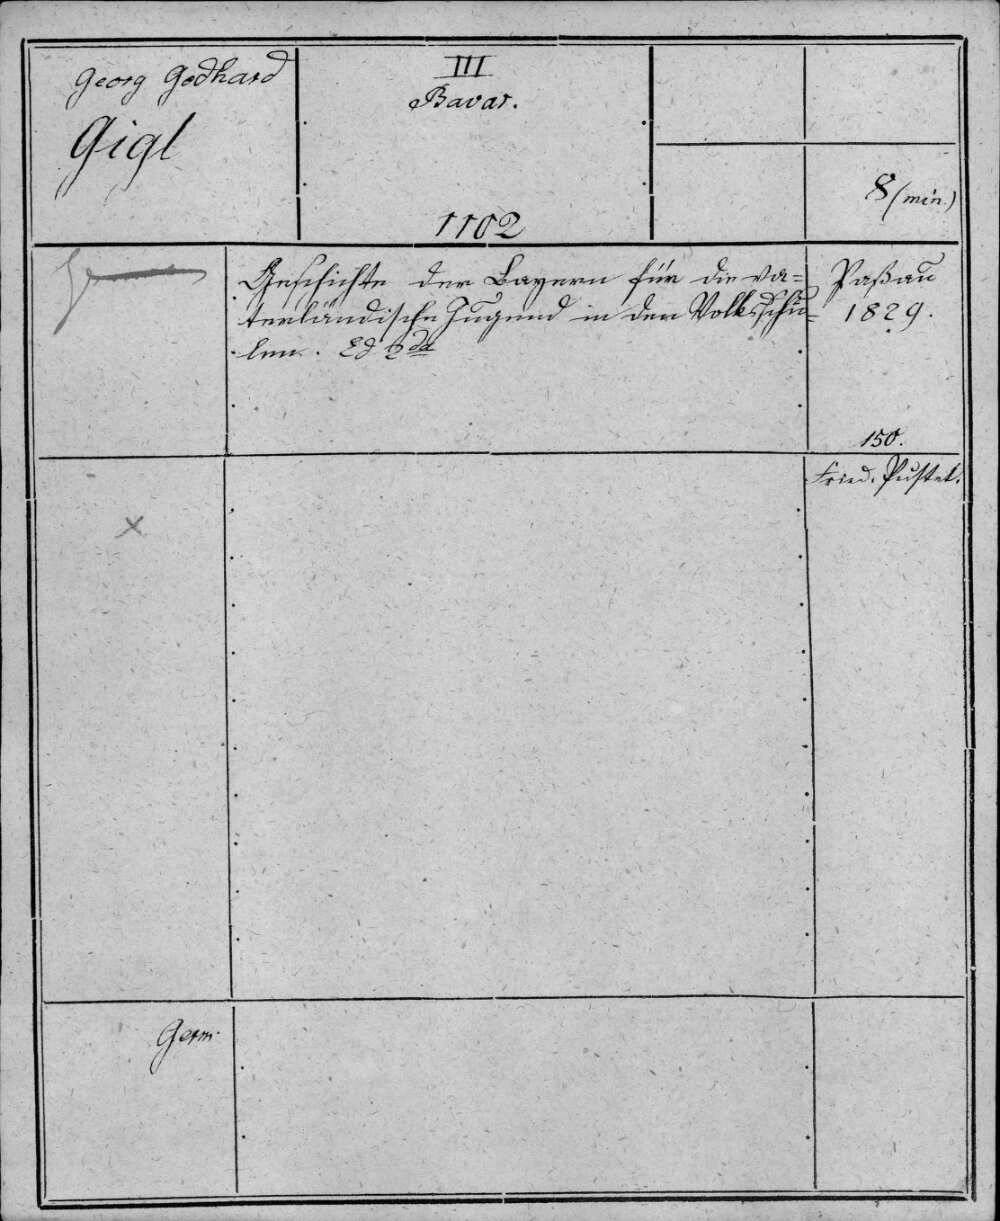 Georg Godhard
Gigl
III
Bavar.
1102
8 (min.)
Geschichte der Bayern für die va=
terländische Jugend in den Volksschu=
len. Ed 2da
Paßau
1829.
150.
Fried. Pustet.
x
Germ.